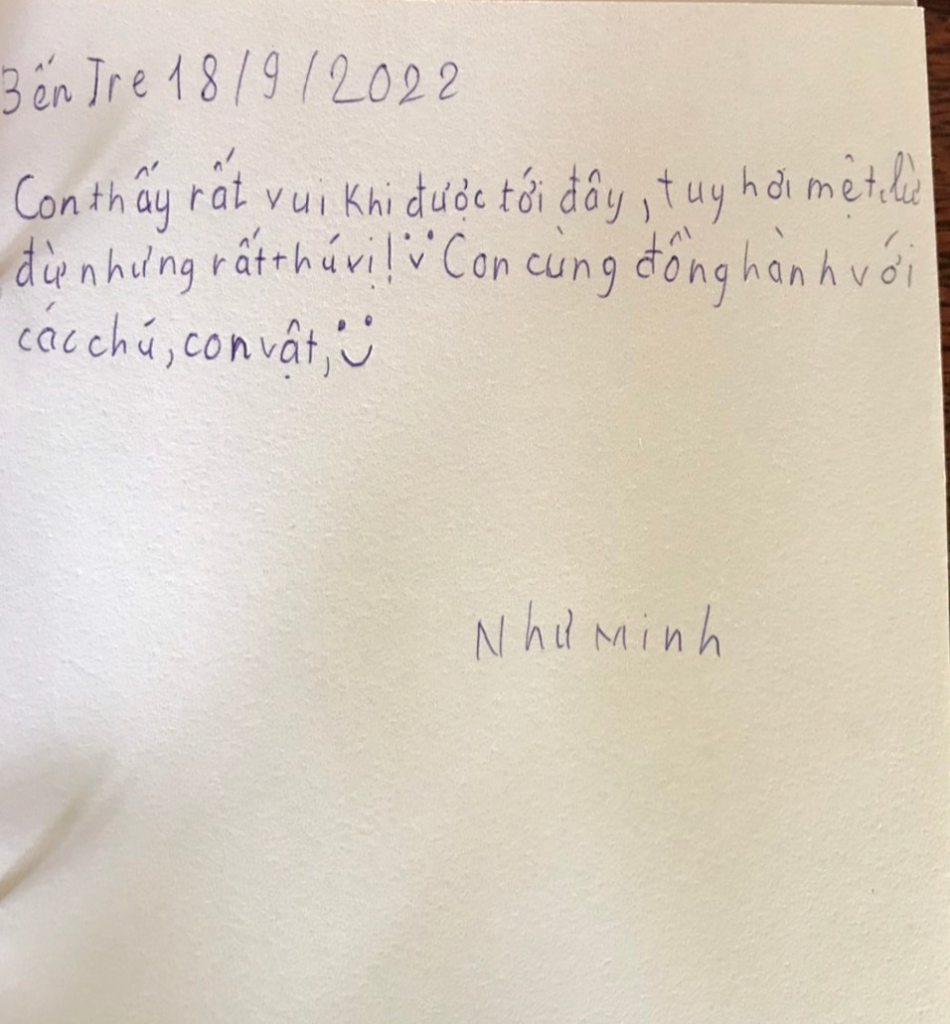 Bến Tre 18/9/2022
Con thấy rất vui khi được tới đây, tuy hơi mệt, lừ
đừ nhưng rất thú vị! Con cùng đồng hành với
các chú, con vật,
Như Minh